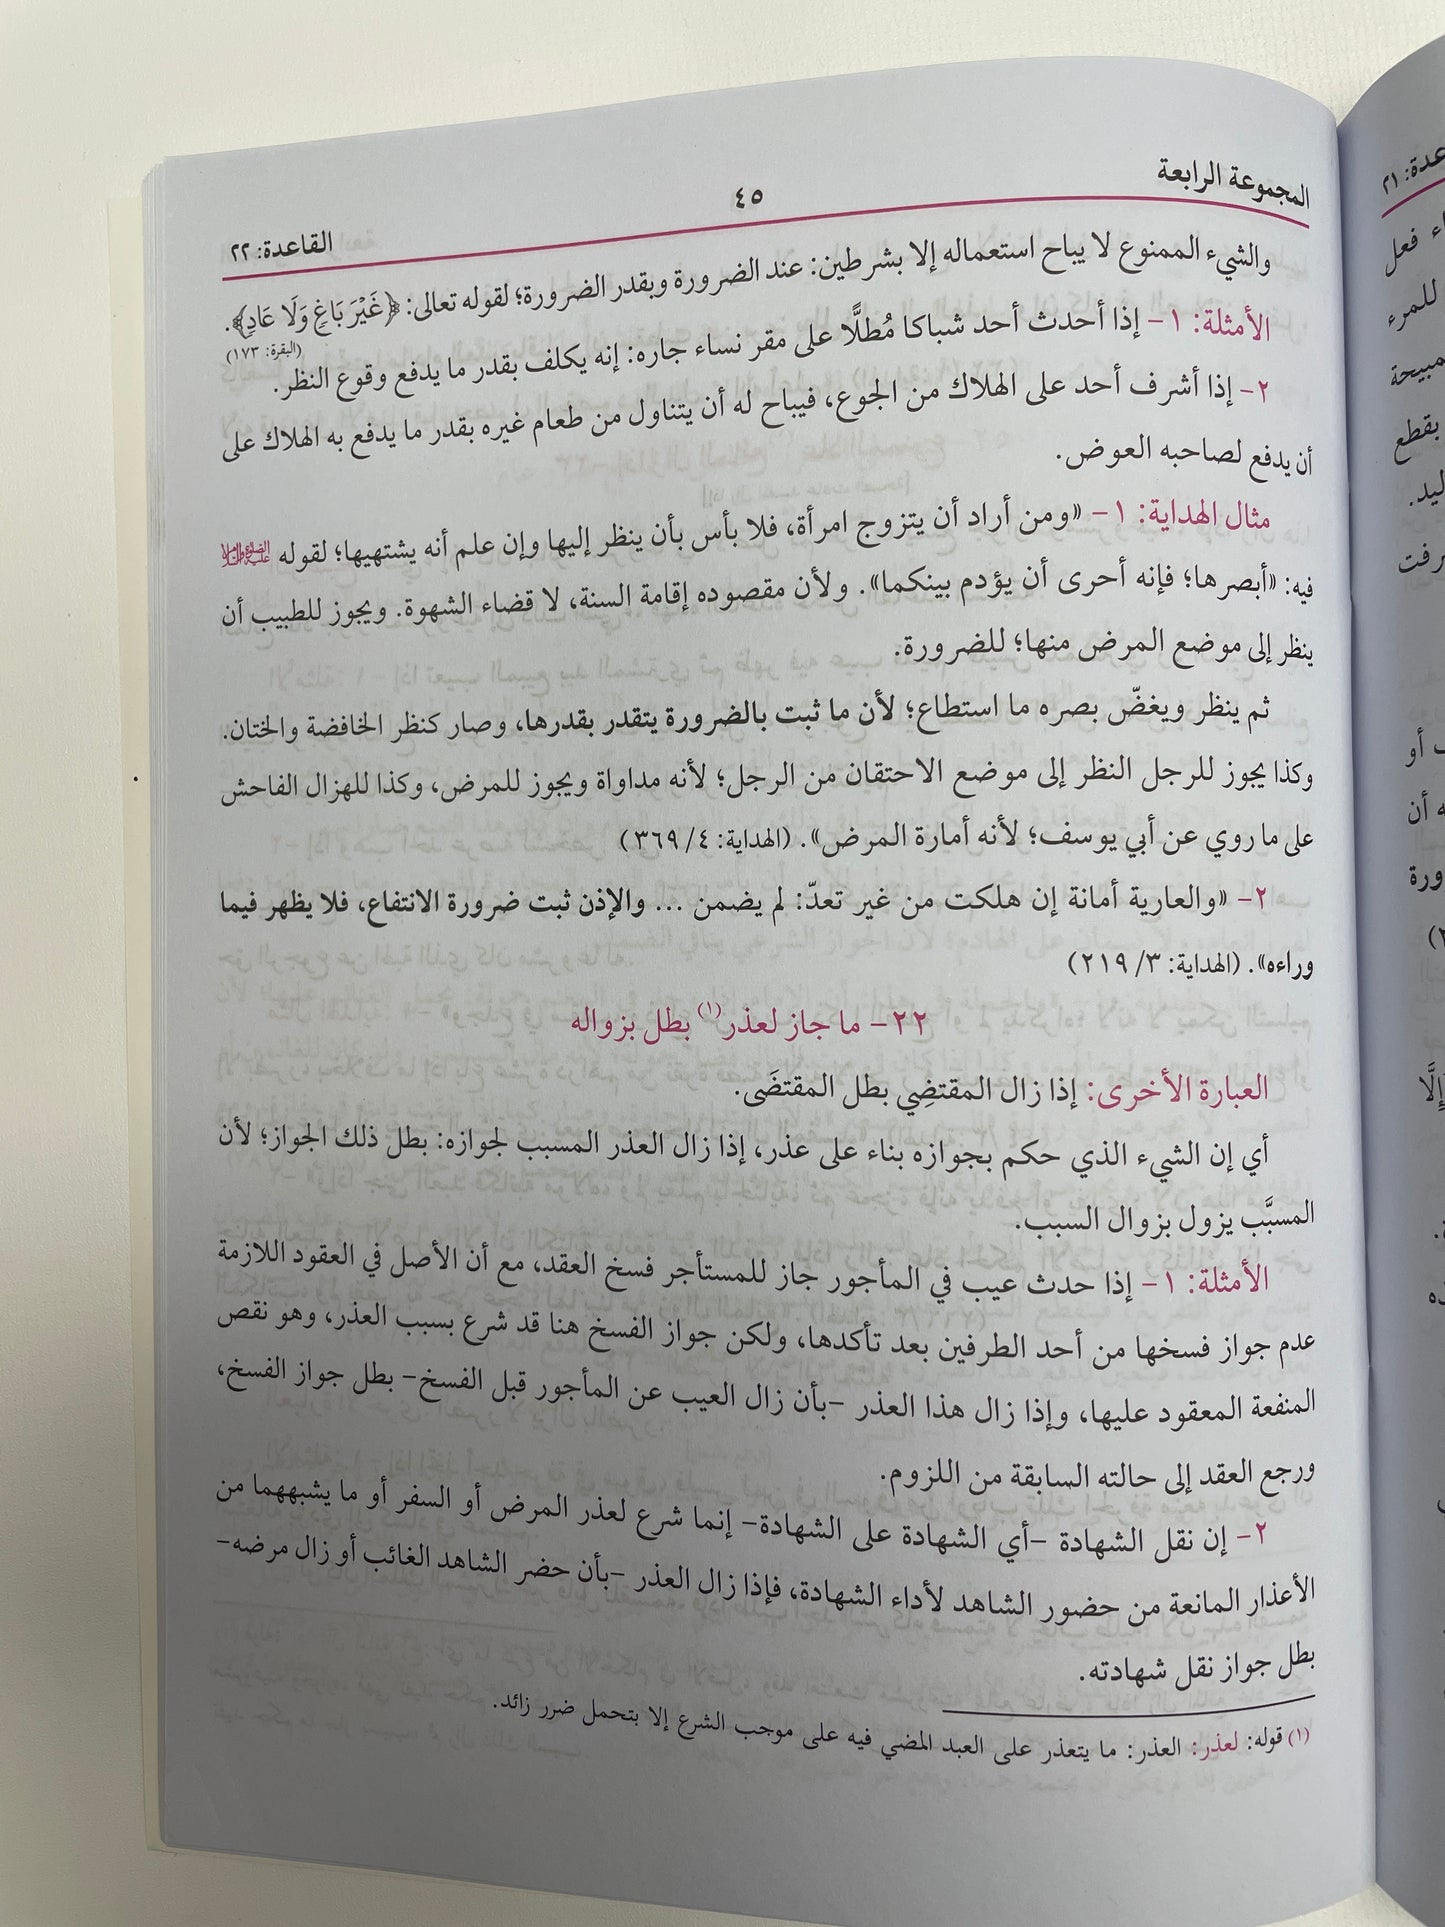 المجموعة الرابعة
٤٥
القاعدة: ٢٢
والشيء الممنوع لا يباح استعماله إلا بشرطين: عند الضرورة وبقدر الضرورة؛ لقوله تعالى: ﴿غَيْرَ بَاغٍ وَلَا عَادٍ﴾.
(البقرة: ١٧٣)
الأمثلة: ١- إذا أحدث أحد شباكا مُطلًّا على مقر نساء جاره: إنه يكلف بقدر ما يدفع وقوع النظر.
٢- إذا أشرف أحد على الهلاك من الجوع، فيباح له أن يتناول من طعام غيره بقدر ما يدفع به الهلاك على
أن يدفع لصاحبه العوض.
مثال الهداية: ١- «ومن أراد أن يتزوج امرأة، فلا بأس بأن ينظر إليها وإن علم أنه يشتهيها؛ لقوله عليه الصلاة والسلام
فيه: «أبصرها؛ فإنه أحرى أن يؤدم بينكما». ولأن مقصوده إقامة السنة، لا قضاء الشهوة. ويجوز للطبيب أن
ينظر إلى موضع المرض منها؛ للضرورة.
ثم ينظر ويغضّ بصره ما استطاع؛ لأن ما ثبت بالضرورة يتقدر بقدرها، وصار كنظر الخافضة والختان.
وكذا يجوز للرجل النظر إلى موضع الاحتقان من الرجل؛ لأنه مداواة ويجوز للمرض، وكذا للهزال الفاحش
على ما روي عن أبي يوسف؛ لأنه أمارة المرض». (الهداية: ٤/ ٣٦٩)
٢- «والعارية أمانة إن هلكت من غير تعدّ: لم يضمن ... والإذن ثبت ضرورة الانتفاع، فلا يظهر فيما
وراءه». (الهداية: ٣/ ٢١٩)
٢٢- ما جاز لعذر(١) بطل بزواله
العبارة الأخرى: إذا زال المقتضِي بطل المقتضَى.
أي إن الشيء الذي حكم بجوازه بناء على عذر، إذا زال العذر المسبب لجوازه: بطل ذلك الجواز؛ لأن
المسبَّب يزول بزوال السبب.
الأمثلة: ١- إذا حدث عيب في المأجور جاز للمستأجر فسخ العقد، مع أن الأصل في العقود اللازمة
عدم جواز فسخها من أحد الطرفين بعد تأكدها، ولكن جواز الفسخ هنا قد شرع بسبب العذر، وهو نقص
المنفعة المعقود عليها، وإذا زال هذا العذر -بأن زال العيب عن المأجور قبل الفسخ- بطل جواز الفسخ،
ورجع العقد إلى حالته السابقة من اللزوم.
٢- إن نقل الشهادة -أي الشهادة على الشهادة- إنما شرع لعذر المرض أو السفر أو ما يشبههما من
الأعذار المانعة من حضور الشاهد لأداء الشهادة، فإذا زال العذر -بأن حضر الشاهد الغائب أو زال مرضه-
بطل جواز نقل شهادته.
(١) قوله: لعذر: العذر: ما يتعذر على العبد المضي فيه على موجب الشرع إلا بتحمل ضرر زائد.